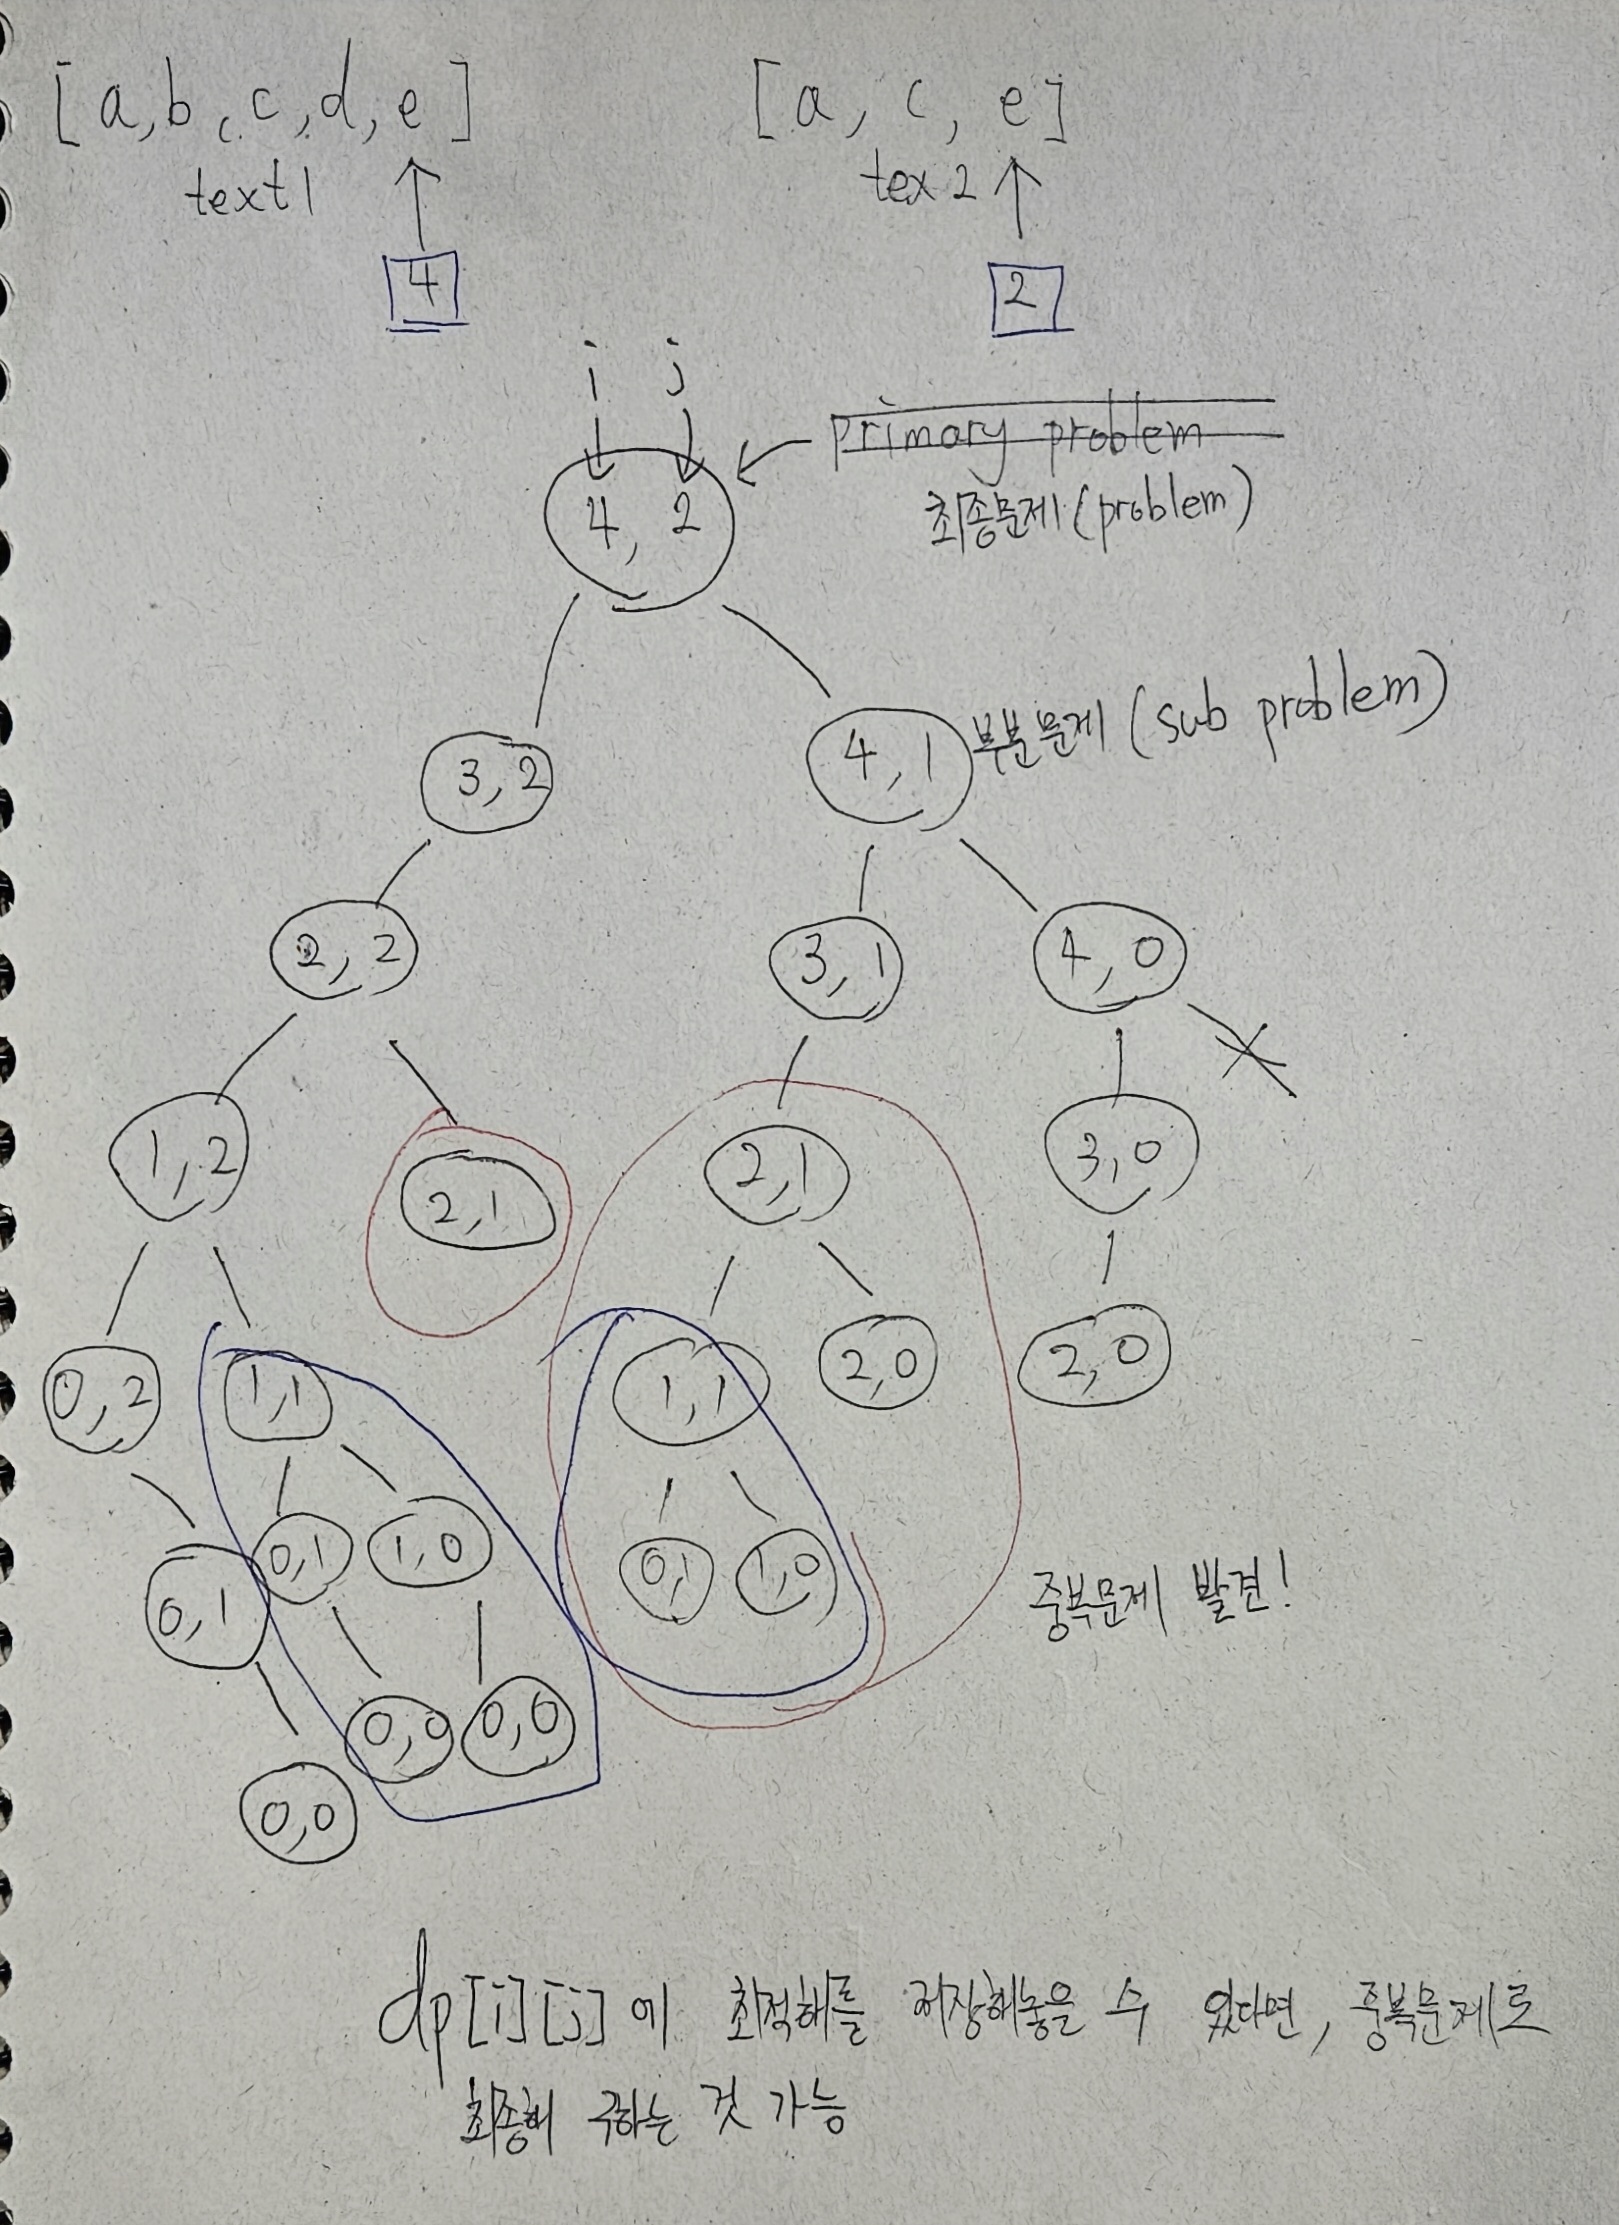 [a,b,c,d,e] [a, c, e]
text1 tex2
4 2
i j
primary problem
4, 2
최종문제(problem)
3,2 4,1 부분문제(sub problem)
2,2 3,1 4,0
1,2 2,1 2,1 3,0
0,2 1,1 1,1 2,0 2,0
0,1 0,1 1,0 0,1 1,0
중복문제 발견!
0,0 0,0 0,0
dp[i][j]에 최적해를 저장해놓을 수 있다면, 중복문제로
최종해 구하는 것 가능